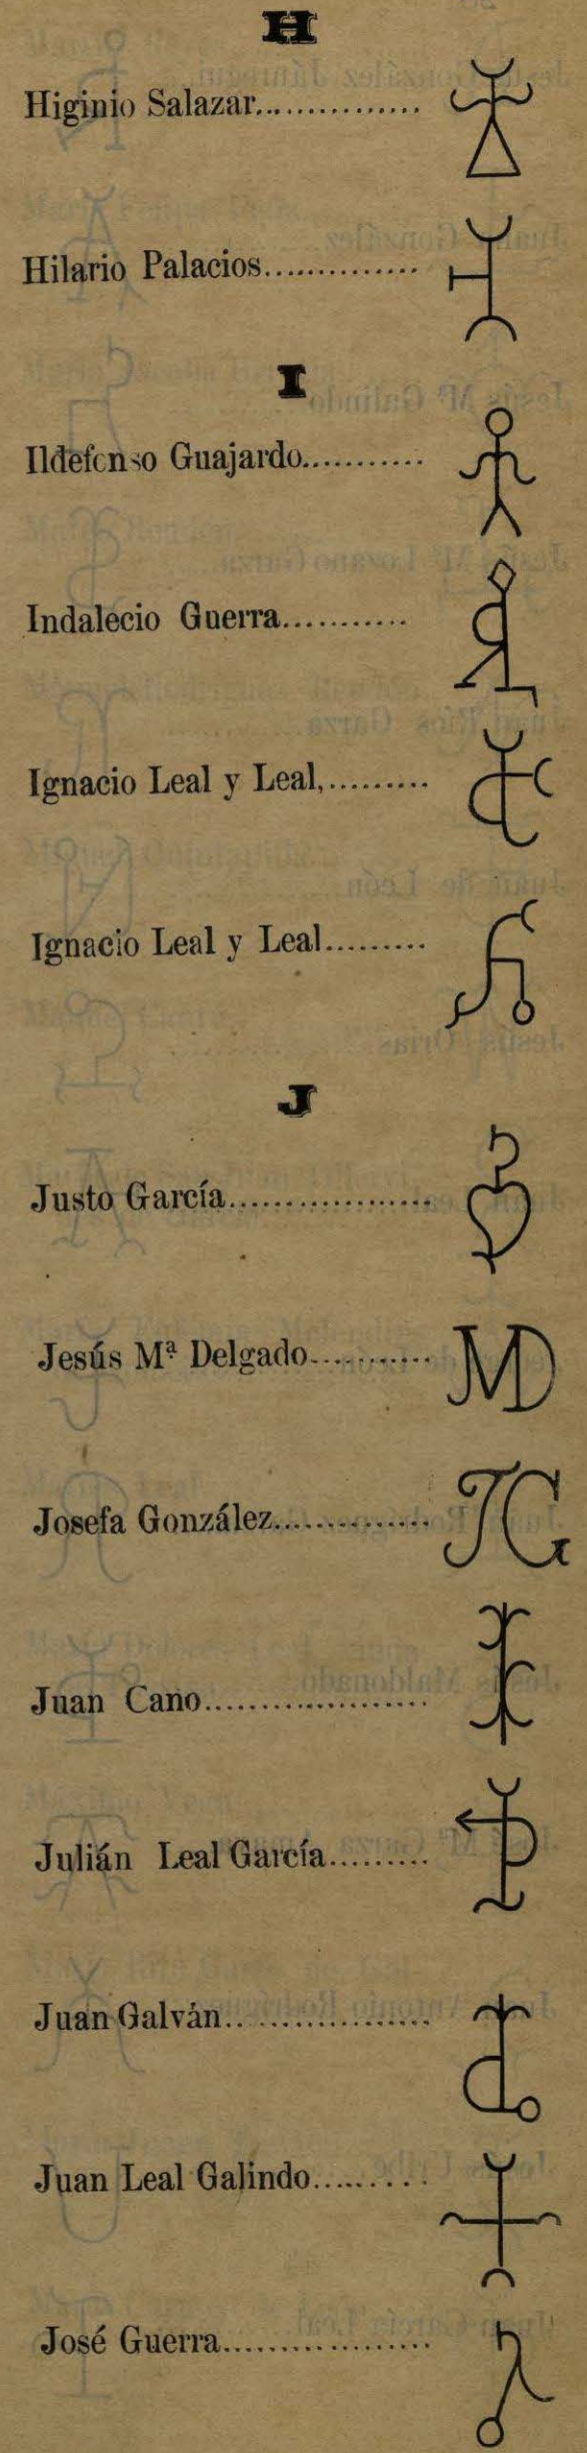 H
Higinio Salazar...............
Hilario Palacios..............
I
Ildefonso Guajardo...........
Indalecio Guerra...........
Ignacio Leal y Leal,.........
Ignacio Leal y Leal.........
J
Justo García..................
Jesús Mª Delgado........... MD
Josefa González.............. JG
Juan Cano....................
Julián Leal García.........
Juan Galván..................
Juan Leal Galindo.........
José Guerra...................